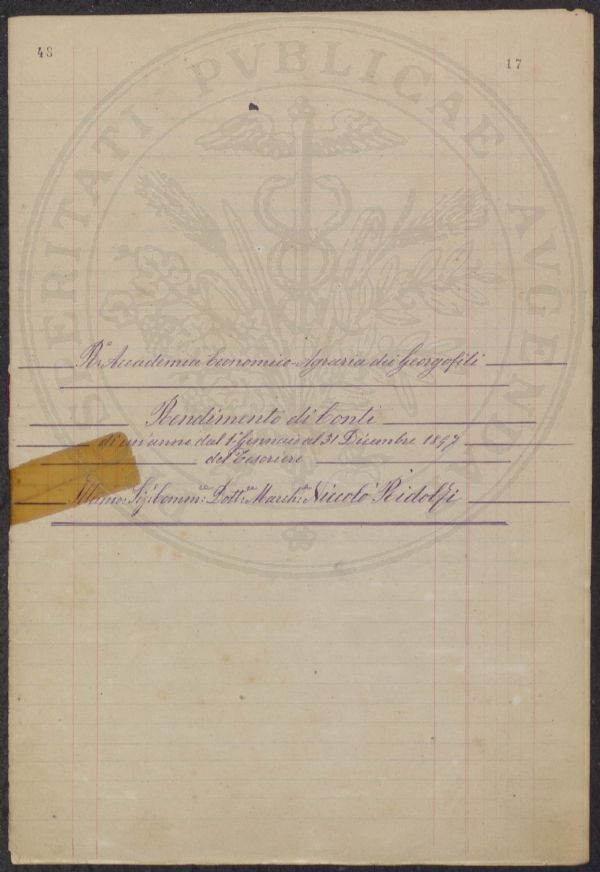 48
17
PROSPERITATI PVBLICAE AVGENDAE
R.ª Accademia Economico-Agraria dei Georgofili
Rendimento di Conti
di un'anno dal 1º Gennaio al 31 Dicembre 1897
del Tesoriere
Illmo: Sig: Comm:re Dott:re March:se Niccolò Ridolfi